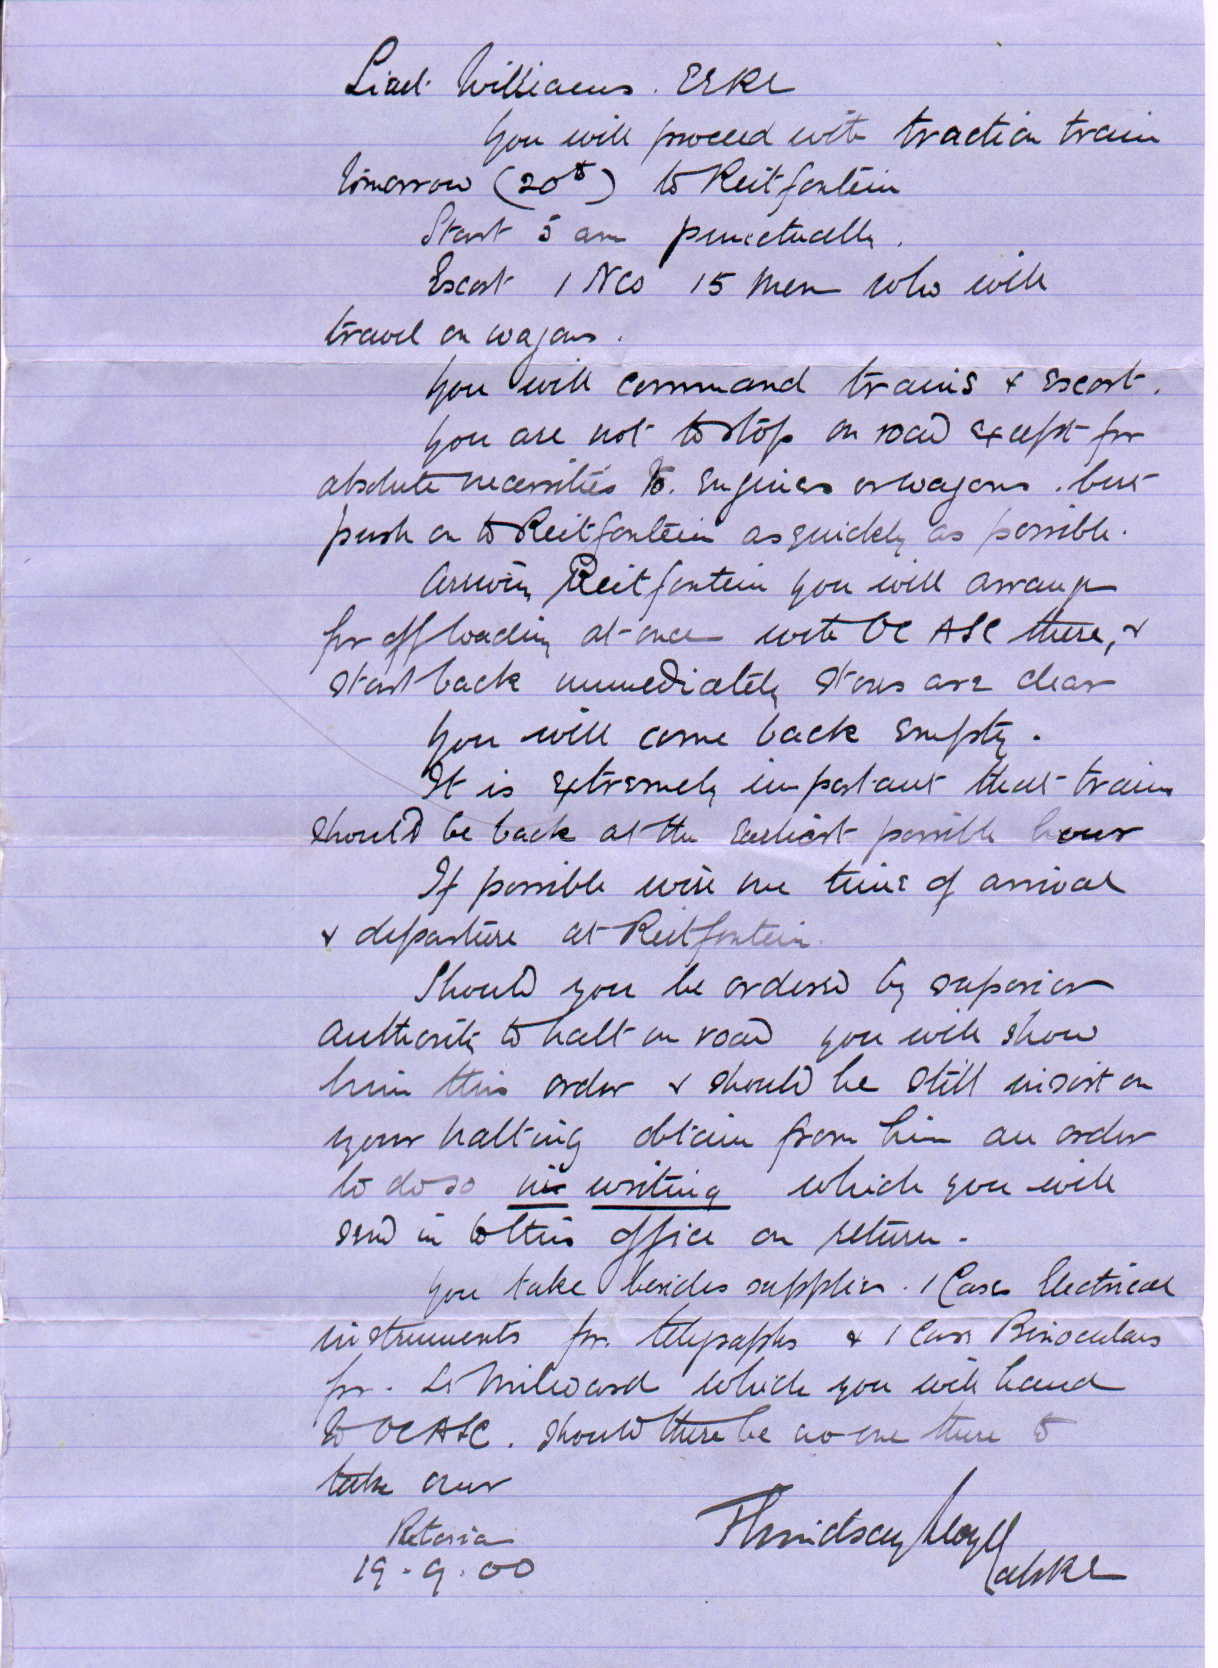 Lieut. Williams. ERE
You will proceed with traction train
tomorrow (20th) to Reitfontein
Start 5 am punctually.
Escort 1 NCO 15 men who will
travel on wagons.
You will command trains & escort.
You are not to stop on road except for
absolute necessities to engines or wagons. but
push on to Reitfontein as quickly as possible.
Arriving Reitfontein you will arrange
for off loading at once with OC ASC there, &
start back immediately stores are clear
You will come back empty.
It is extremely important that trains
should be back at the earliest possible hour
If possible wire me time of arrival
& departure at Reitfontein.
Should you be ordered by superior
authority to halt on road you will show
him this order & should he still insist on
your halting obtain from him an order
to do so in writing which you will
send in to this office on return.
You take besides supplies. 1 Case Electrical
instruments for telegraphs & 1 Case Binoculars
for. Lt Milward which you will hand
to OC ASC. should there be no one there to
take over
Pretoria
19.9.00
Lindsay Lloyd
Capt RE